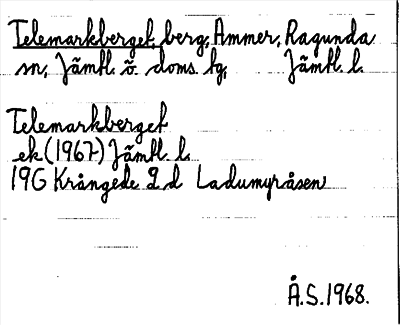 Telemarkberget, berg, Ammer, Ragunda
sn, Jämtl. ö. doms. tg, Jämtl. l.
Telemarkberget
ek (1967) Jämtl. l.
19G Krångede 9 d Ladumyråsen
Å.S. 1968.